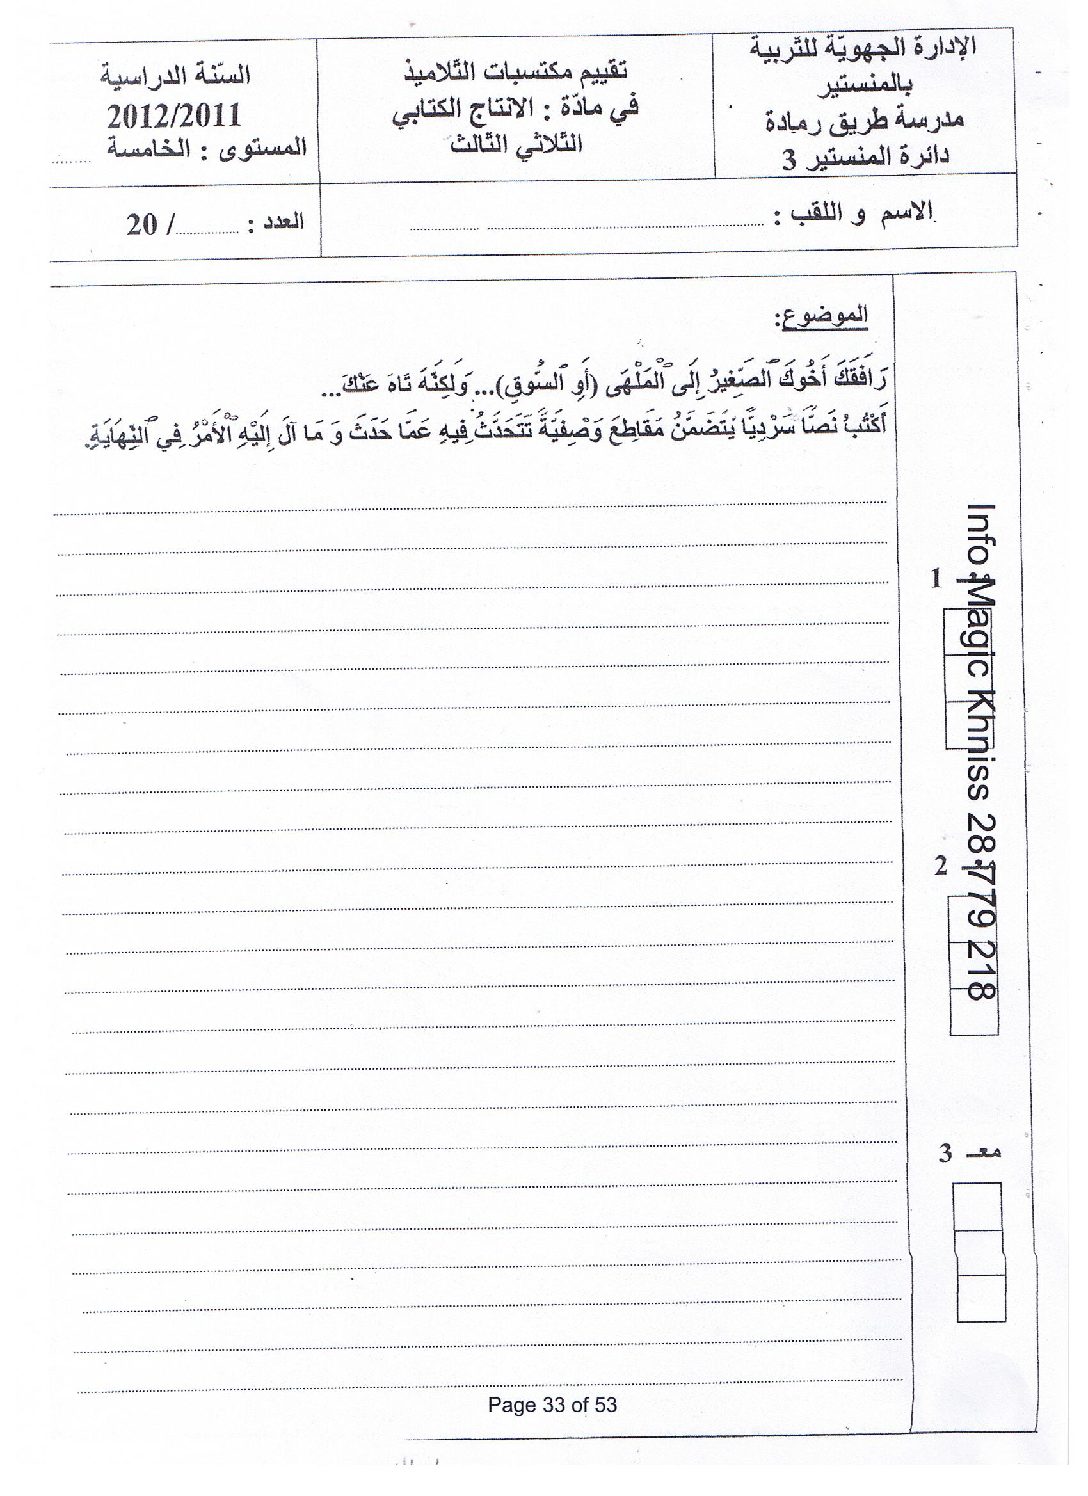 الإدارة الجهويّة للتّربية
بالمنستير
مدرسة طريق رمادة
دائرة المنستير 3
تقييم مكتسبات التّلاميذ
في مادّة : الانتاج الكتابي
الثّلاثي الثّالث
السّنة الدراسية
2012/2011
المستوى : الخامسة ........
الاسم و اللقب : ........................................................
العدد : ............/ 20
الموضوع:
رَافَقَكَ أَخُوكَ ٱلصَّغِيرُ إِلَى ٱلْمَلْهَى (أَوِ ٱلسُّوقِ)... وَلَكِنَّهُ تَاهَ عَنْكَ...
أَكْتُبُ نَصًّا سَرْدِيًّا يَتَضَمَّنُ مَقَاطِعَ وَصْفِيَّةً تَتَحَدَّثُ فِيهِ عَمَّا حَدَثَ وَ مَا آلَ إِلَيْهِ ٱلْأَمْرُ فِي ٱلنِّهَايَةِ.
1
2
معـ 3
Info Magic Khniss 28 779 218
Page 33 of 53